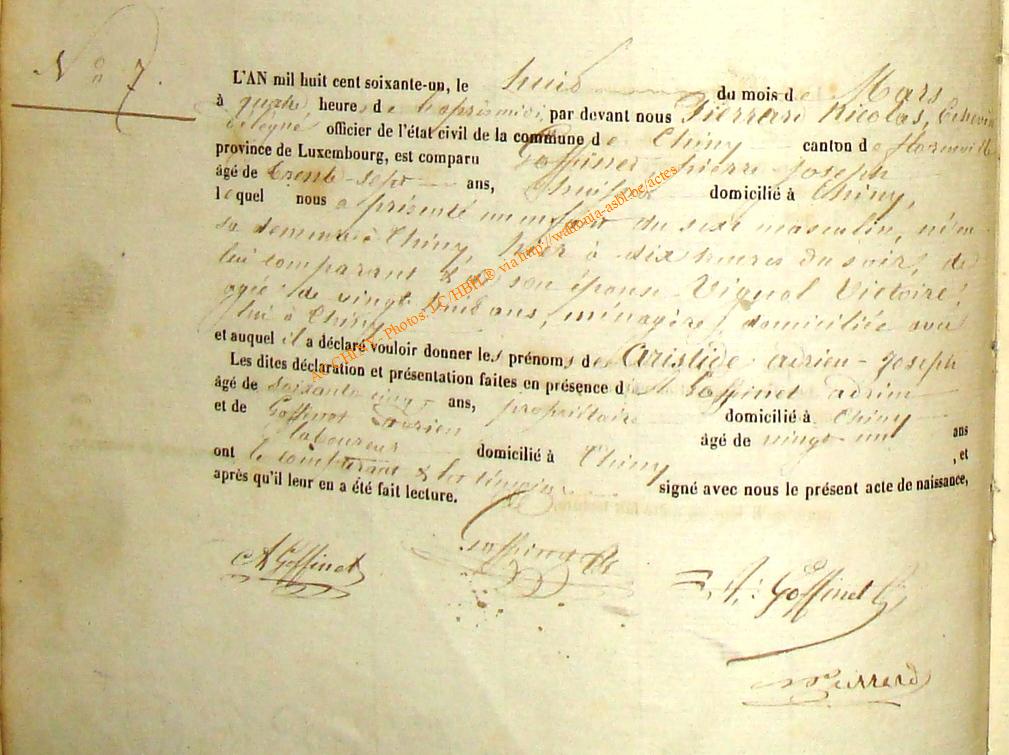 N° 7.
L'AN mil huit cent soixante-un, le huit du mois de Mars
à quatre heure de l'après midi, par devant nous Pierrard Nicolas, Echevin
délégué officier de l'état civil de la commune de Chiny canton de Florenville
province de Luxembourg, est comparu Goffinet pierre Joseph
âgé de trente-sept ans, domicilié à Chiny,
lequel nous a présenté un enfant du sexe masculin, né en
sa demeure à Chiny, hier à dix heures du soir, de
lui comparant & de son épouse Vignol Victoire,
agée de vingt ans, ménagère, domiciliée avec
lui à Chiny
et auquel il a déclaré vouloir donner les prénoms de Aristide adrien-Joseph
Les dites déclaration et présentation faites en présence de Goffinet adrien
âgé de soixante cinq ans, propriétaire domicilié à Chiny
et de Goffinet adrien âgé de vingt un ans
laboureur domicilié à Chiny, et
ont le comparant & les témoins signé avec nous le présent acte de naissance,
après qu'il leur en a été fait lecture.
A Goffinet
Goffinet
A: Goffinet
Pierrard
AC CHINY - Photos: LC/HBH ® via http://wallonia-asbl.be/actes